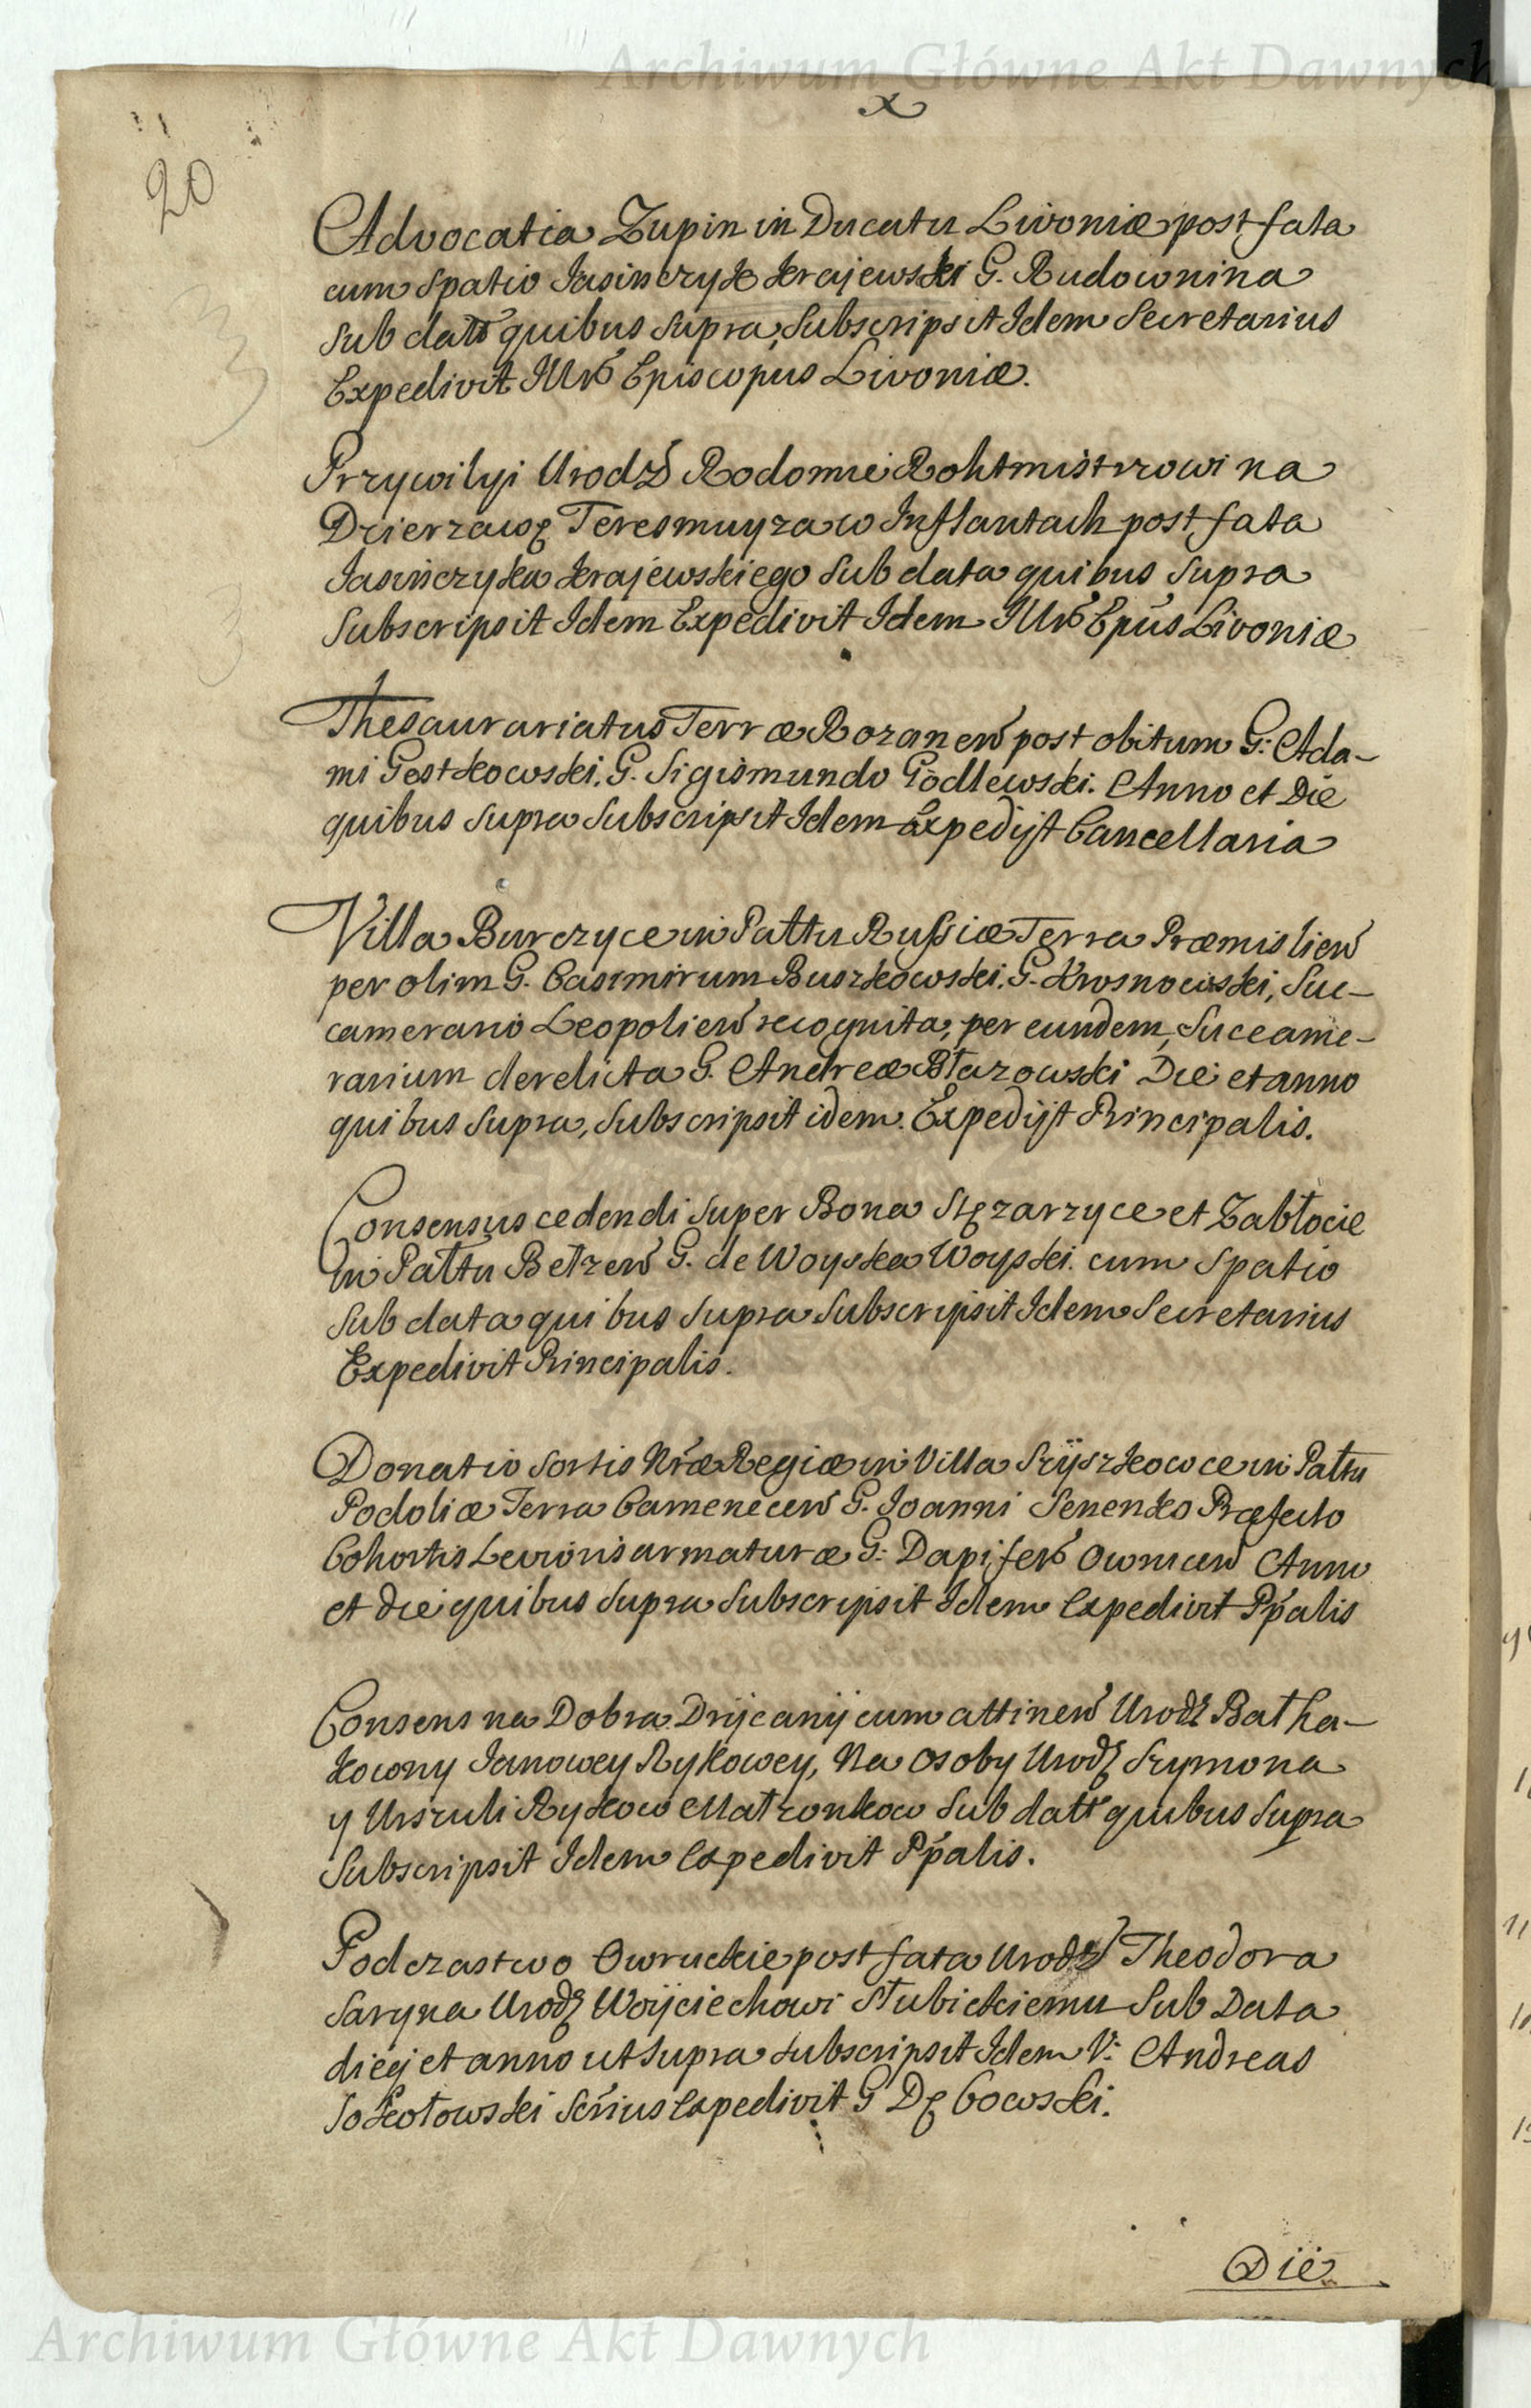 Archiwum Główne Akt Dawnych
x
20
Advocatia Zupin in Ducatu Livoniæ post fata
cum spatio Jasinczyk Krajewski G. Rudownina
sub datt quibus supra, subscripsit Idem Secretarius
Expedivit Illrs Episcopus Livoniæ.
Przywilyi Urodz Rodomie Rohtmistrzowi na
Dzierzawę Teresmuyza w Inflantach post fata
Jasinczyka Krajewskiego sub data quibus supra
subscripsit Idem Expedivit Idem Illrs Epus Livoniæ
Thesaurariatus Terræ Rozanen post obitum G: Ada-
mi Gostkowski. G. Sigismundo Godlewski. Anno et Die
quibus supra subscripsit Idem Expedijt Cancellaria
Villa Burczyce in Pattu Russiæ Terra Præmislien
per olim G. Casimirum Buszkowski. G. Krosnowski, Suc-
camerario Leopolien recognita, per eundem, Succame-
rarium derelicta G. Andreæ Błazowski Die et anno
quibus supra, subscripsit idem. Expedijt Principalis.
Consensus cedendi super Bona Stęzarzyce et Zabłocie
in Pattu Bełzen G. de Woyska Woyski. cum spatio
sub data quibus supra subscripsit Idem Secretarius
Expedivit Principalis.
Donatio sortis Nræ Regiæ in Villa Szÿszkowce in Pattu
Podoliæ Terra Camenecen G. Joanni Senenko Præfecto
Cohortis Levioris armaturæ G: Dapifero Owrucen Anno
et die quibus supra subscripsit Idem Expedivit Ppalis
Consens na Dobra Drÿcanÿ cum attinen Urodz Batha-
kowny Janowey Rykowey, Na osoby Urodz Szymona
y Urszuli Rykow Małzonkow sub datt quibus supra
subscripsit Idem Expedivit Ppalis.
Podczastwo Owruckie post fata Urodz Theodora
Saryna Urodz Woÿciechowi Słubickiemu Sub Data
dieij et anno ut supra subscripsit Idem V: Andreas
Sokołowski Scrius Expedivit G Dębowski.
Die
Archiwum Główne Akt Dawnych